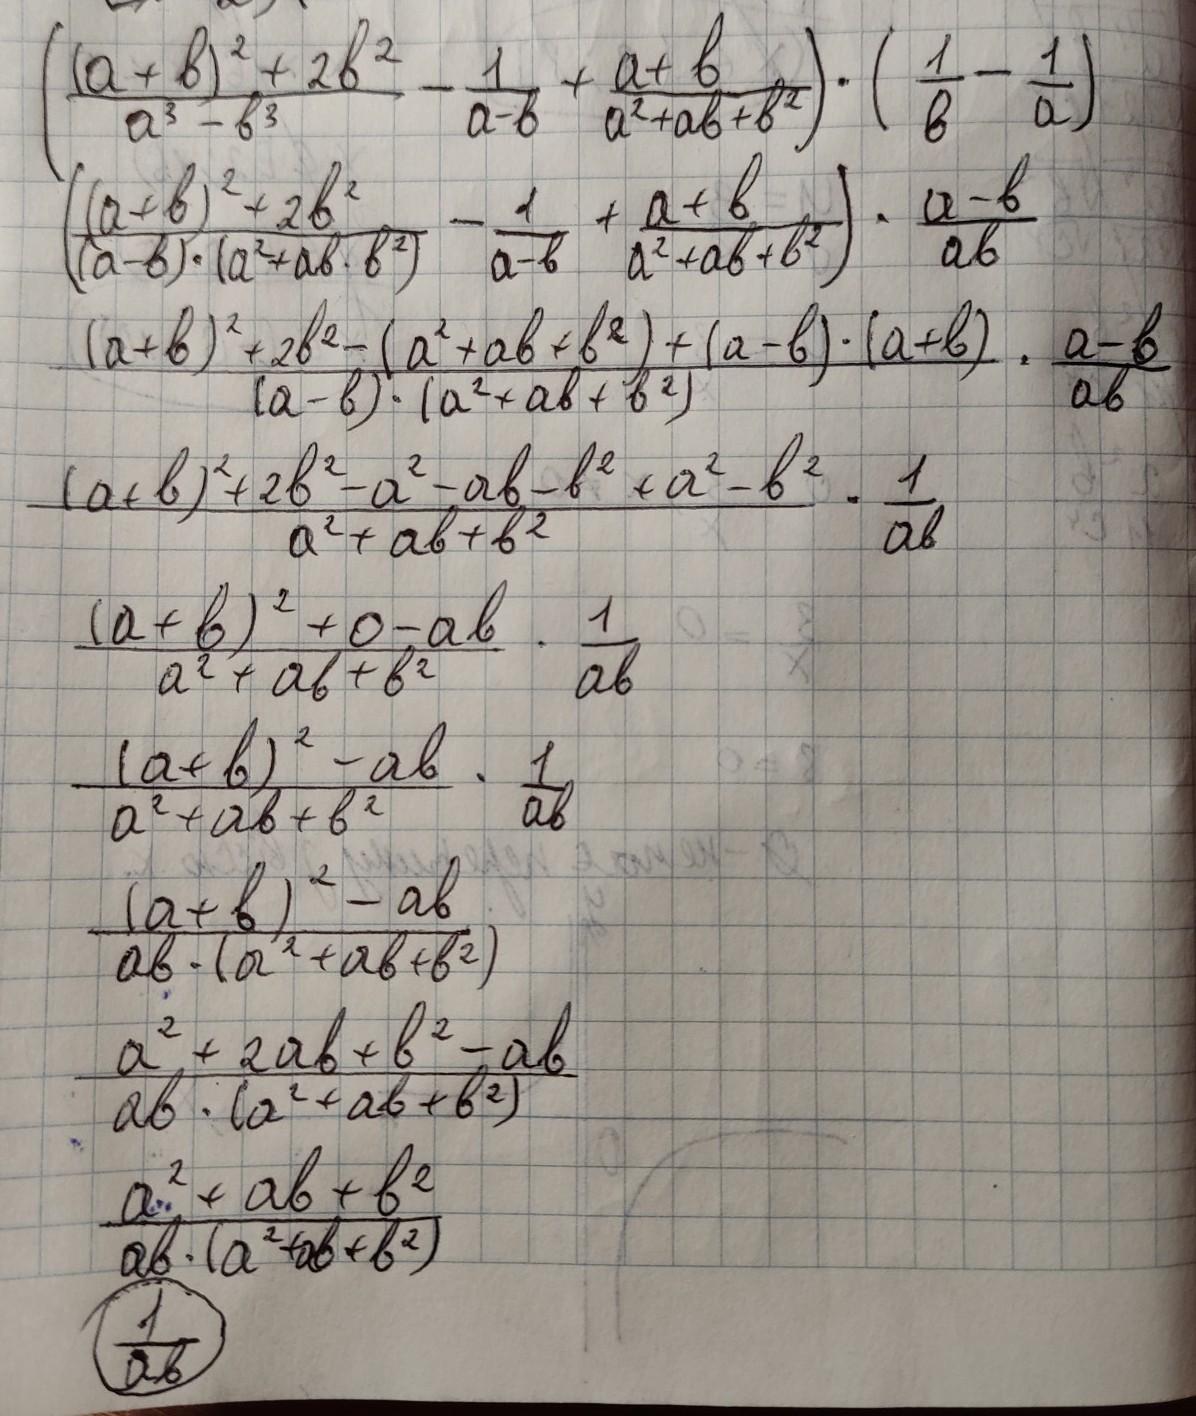 ((a+b)²+2b²)/(a³-b³) - 1/(a-b) + (a+b)/(a²+ab+b²)) · (1/b - 1/a)
(((a+b)²+2b²)/((a-b)·(a²+ab·b²)) - 1/(a-b) + (a+b)/(a²+ab+b²)) · (a-b)/(ab)
((a+b)²+2b²-(a²+ab+b²)+(a-b)·(a+b))/((a-b)·(a²+ab+b²)) · (a-b)/(ab)
((a+b)²+2b²-a²-ab-b²+a²-b²)/(a²+ab+b²) · 1/(ab)
((a+b)²+0-ab)/(a²+ab+b²) · 1/(ab)
((a+b)²-ab)/(a²+ab+b²) · 1/(ab)
((a+b)²-ab)/(ab·(a²+ab+b²))
(a²+2ab+b²-ab)/(ab·(a²+ab+b²))
(a²+ab+b²)/(ab·(a²+ab+b²))
1/(ab)